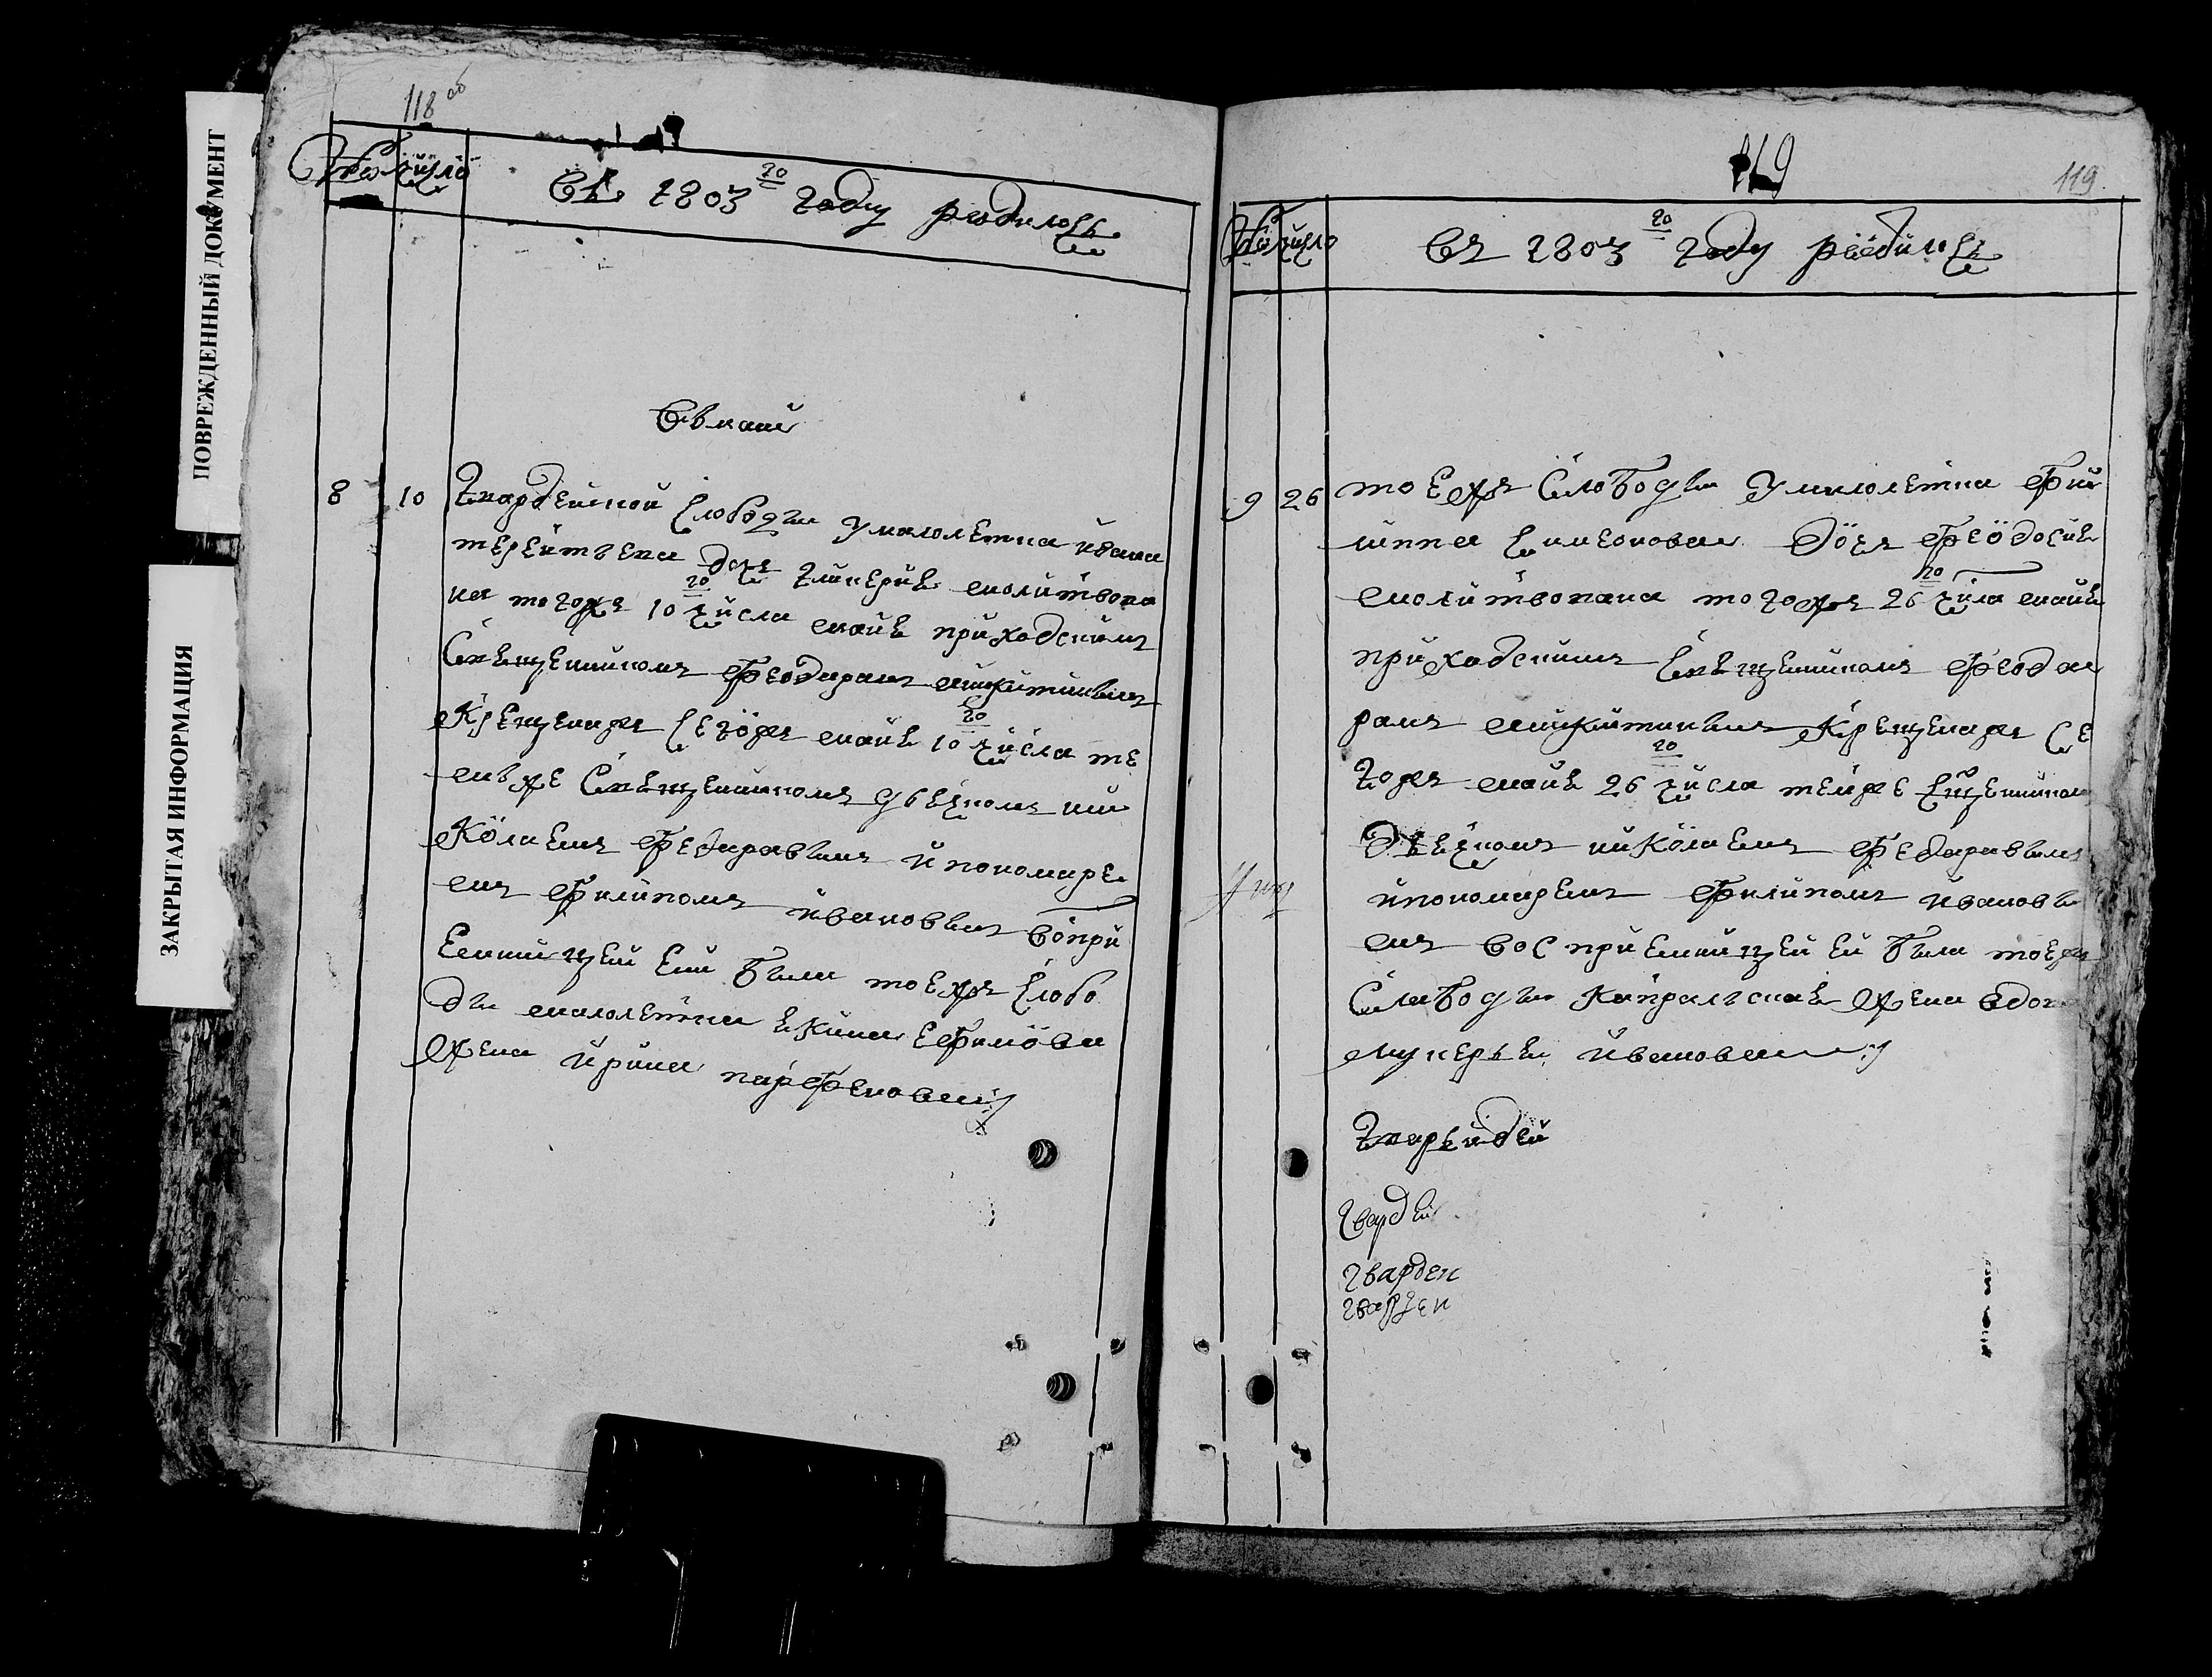 ПОВРЕЖДЕННЫЙ ДОКУМЕНТ
ЗАКРЫТАЯ ИНФОРМАЦИЯ
118 об
число
Въ 1803 го году родилось
В маии
8
10
Гвардейской слободы у малолетка ивана
терентьева дочь гликериѣ молитвова
на тогожъ 10 го числа маиѣ приходскимъ
священникомъ феодоромъ никитинымъ
крещенажъ сегожъ маиѣ 10 го числа те
мъже священникомъ дьечкомъ ни
колаемъ федаровымъ и пономаре
мъ филипомъ ивановымъ вопри
емницей ей была тоежъ слобо
ды малолетка екима ефимова
жена ирина парфенова
119
119
число
Въ 1803 го году родилось
9
26
тоежъ слободы у малолетка фи
липпа симеонова дочь феодосиѣ
молитвована тогожъ 26 го числа маиѣ
приходскимъ священникомъ феода
ромъ никитинымъ крещенажъ се
гожъ маиѣ 26 го числа темже сщенником
дьечкомъ николаемъ федаровымъ
и пономаремъ филипомъ ивановы
мъ восприемницей ей была тоежъ
слободы капральскаѣ жена вдова
лукерьѣ иванова
Гвардей
гварден
гварден